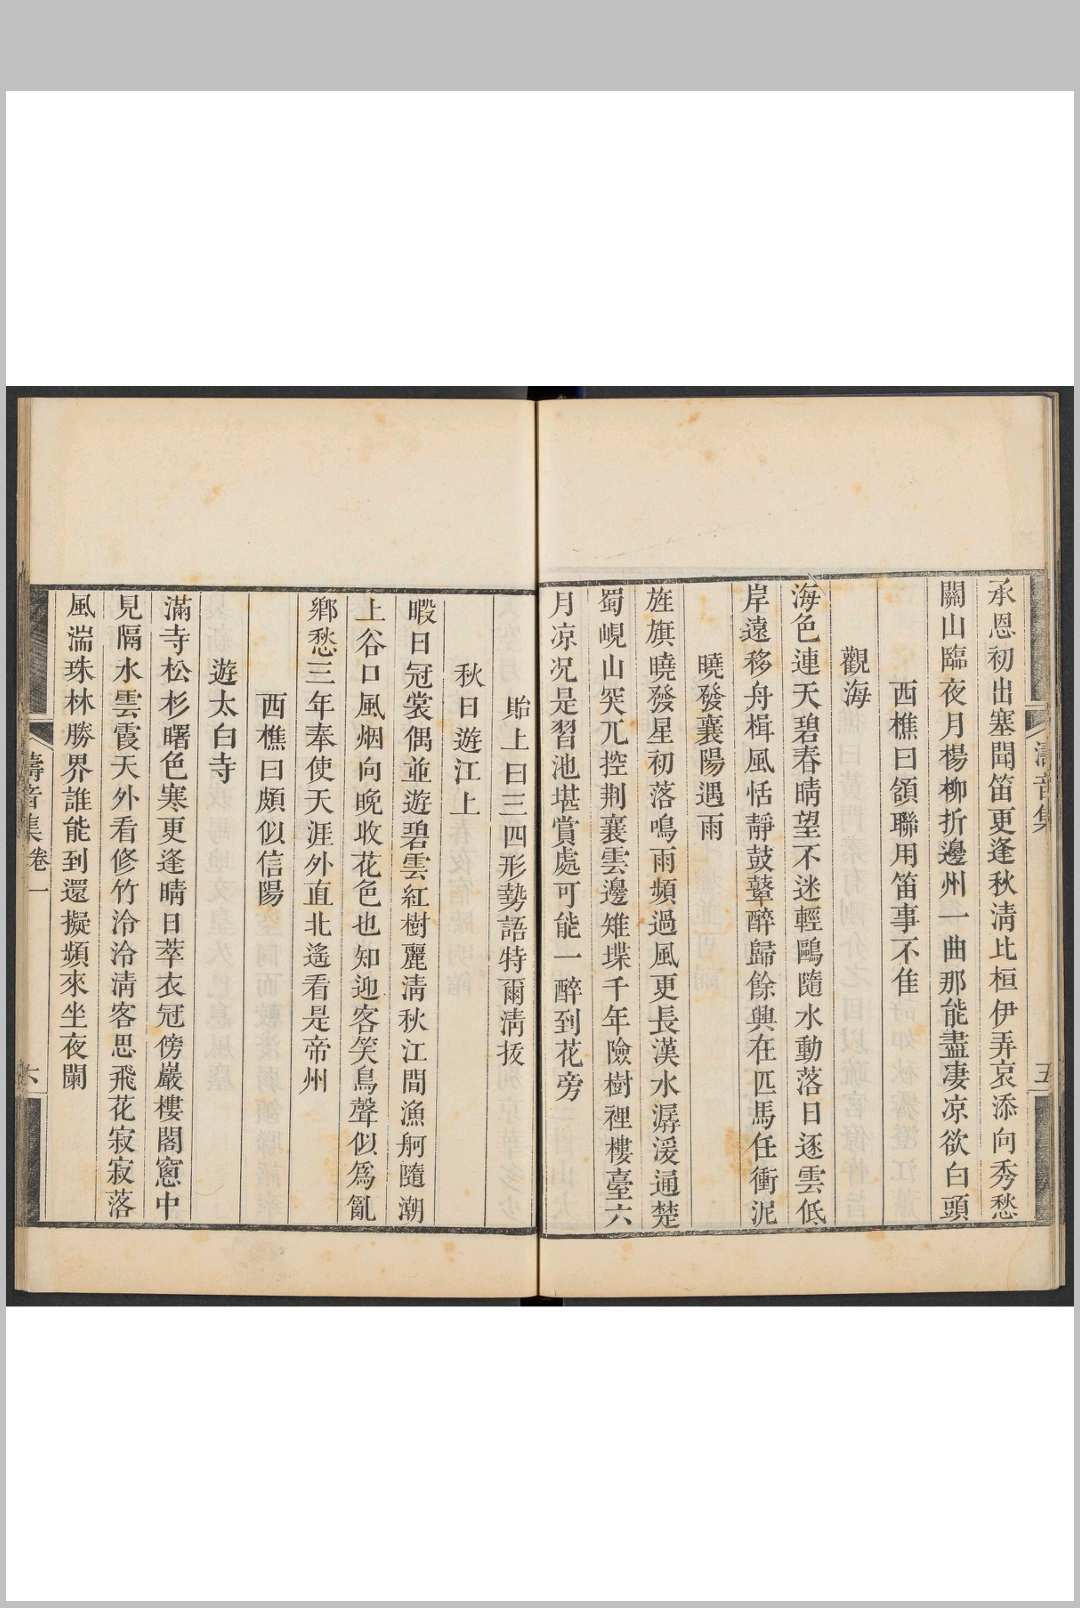 承恩初出塞聞笛更逢秋淸比桓伊弄哀添向秀愁
關山臨夜月楊柳折邊州一曲那能盡凄凉欲白頭
西樵曰頷聯用笛事不隹
觀海
海色連天碧春晴望不迷輕鷗隨水動落日逐雲低
岸遠移舟楫風恬靜鼓鼙醉歸餘興在匹馬任衝泥
曉發襄陽遇雨
旌旗曉發星初落鳴雨頻過風更長漢水潺湲通楚
蜀峴山突兀控荆襄雲邊雉堞千年險樹裡樓臺六
月凉况是習池堪賞處可能一醉到花旁
貽上曰三四形勢語特爾淸拔
秋日遊江上
暇日冠裳偶並遊碧雲紅樹麗淸秋江間漁舸隨潮
上谷口風烟向晚收花色也知迎客笑鳥聲似爲亂
鄉愁三年奉使天涯外直北遙看是帝州
西樵曰頗似信陽
遊太白寺
滿寺松杉曙色寒更逢晴日萃衣冠傍巖樓閣窻中
見隔水雲霞天外看修竹泠泠淸客思飛花寂寂落
風湍珠林勝界誰能到還擬頻來坐夜闌
濤音集
五
濤音集卷一
六